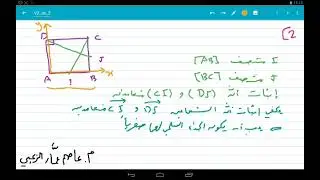 V2_ex_2
2]
y
D C
J
A I B x
I منتصف [AB]
J منتصف [BC]
إثبات أنّ (DJ) و (CI) متعامدان
يكفي إثبات أنّ الشعاعين DJ و CI متعامدين
يجب أن يكون الجداء السلمي لهما صفرياً
م. عاصم عمّار الزعبي